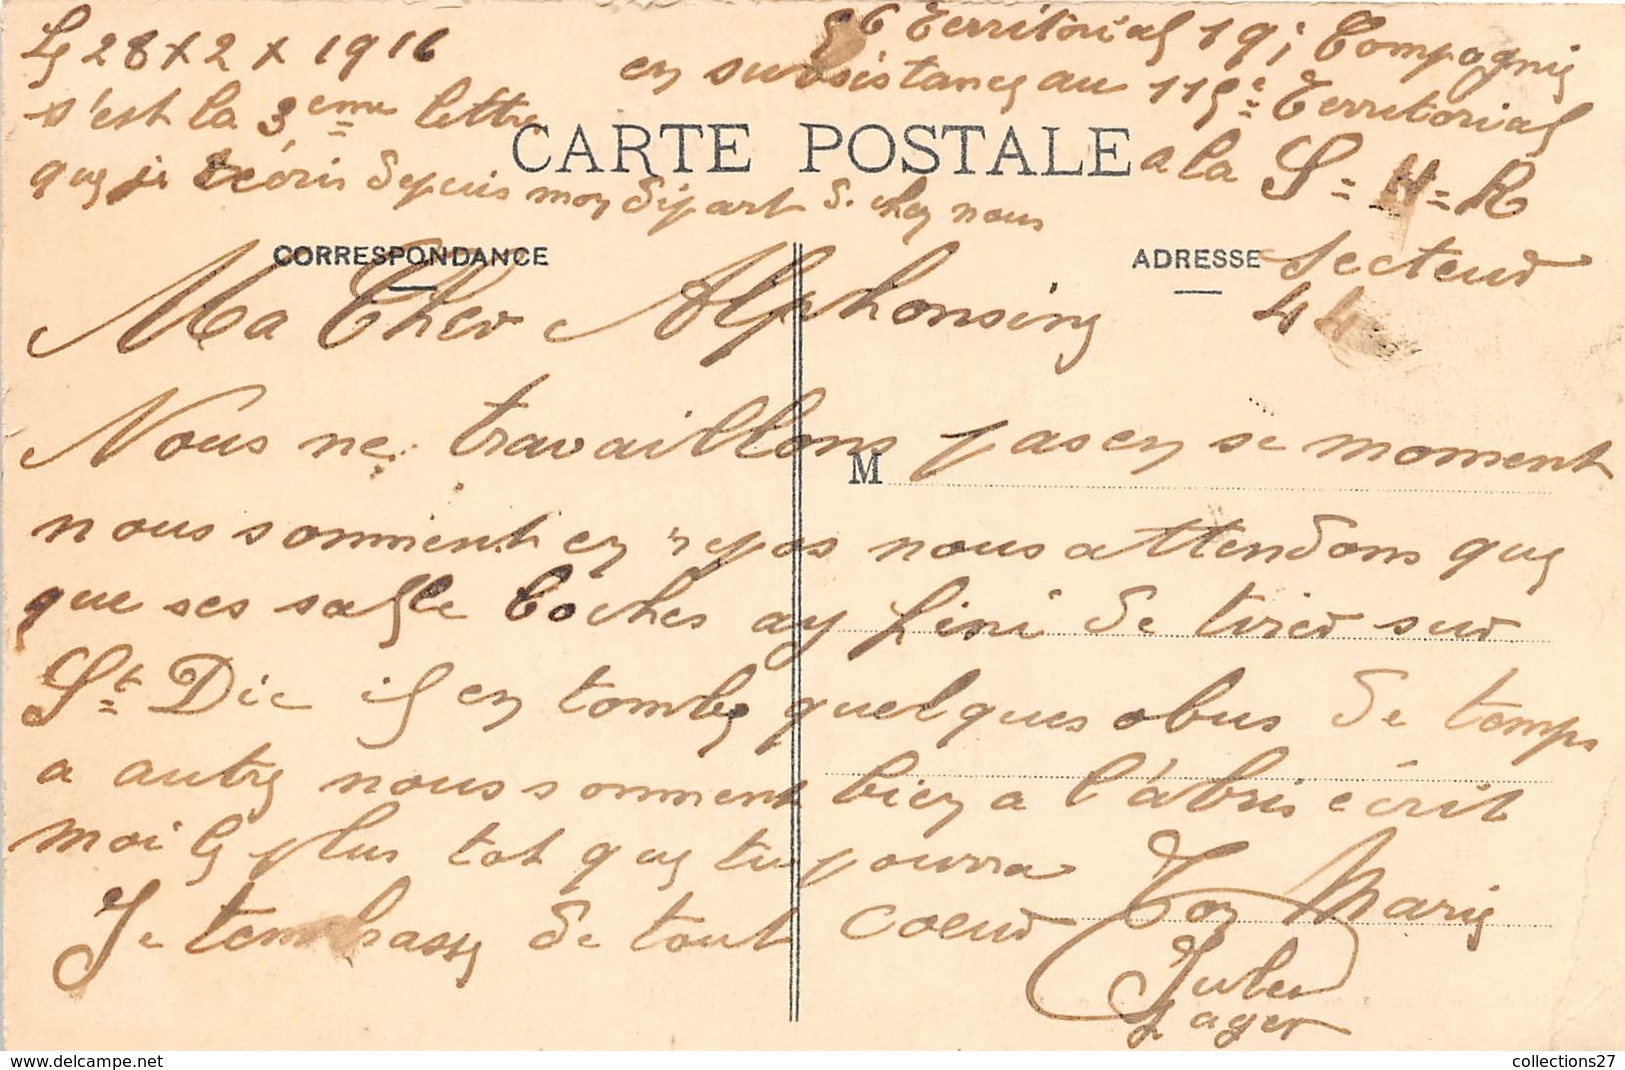 Le 28 x 2 x 1916
s'est la 3eme lettre
que je técris depuis mon dipart de chez nous
56 Territorial 19e Compagnie
en subsistance au 115e Territorial
a la S=H=R
Secteur
44
CARTE POSTALE
CORRESPONDANCE
ADRESSE
M
Ma Cher Alphonsine
Nous ne travaillons pas en se moment
nous somment en repos nous attendons que
que ses salle boches ay fini de tirer sur
St Die il en tombe quelques obus de temps
a autre nous somment bien a l'abris écrit
moi le plus tot que tu pourra
Je tembrasse de tout coeur Ton Marie
Jules
Jager
www.delcampe.net
collections27